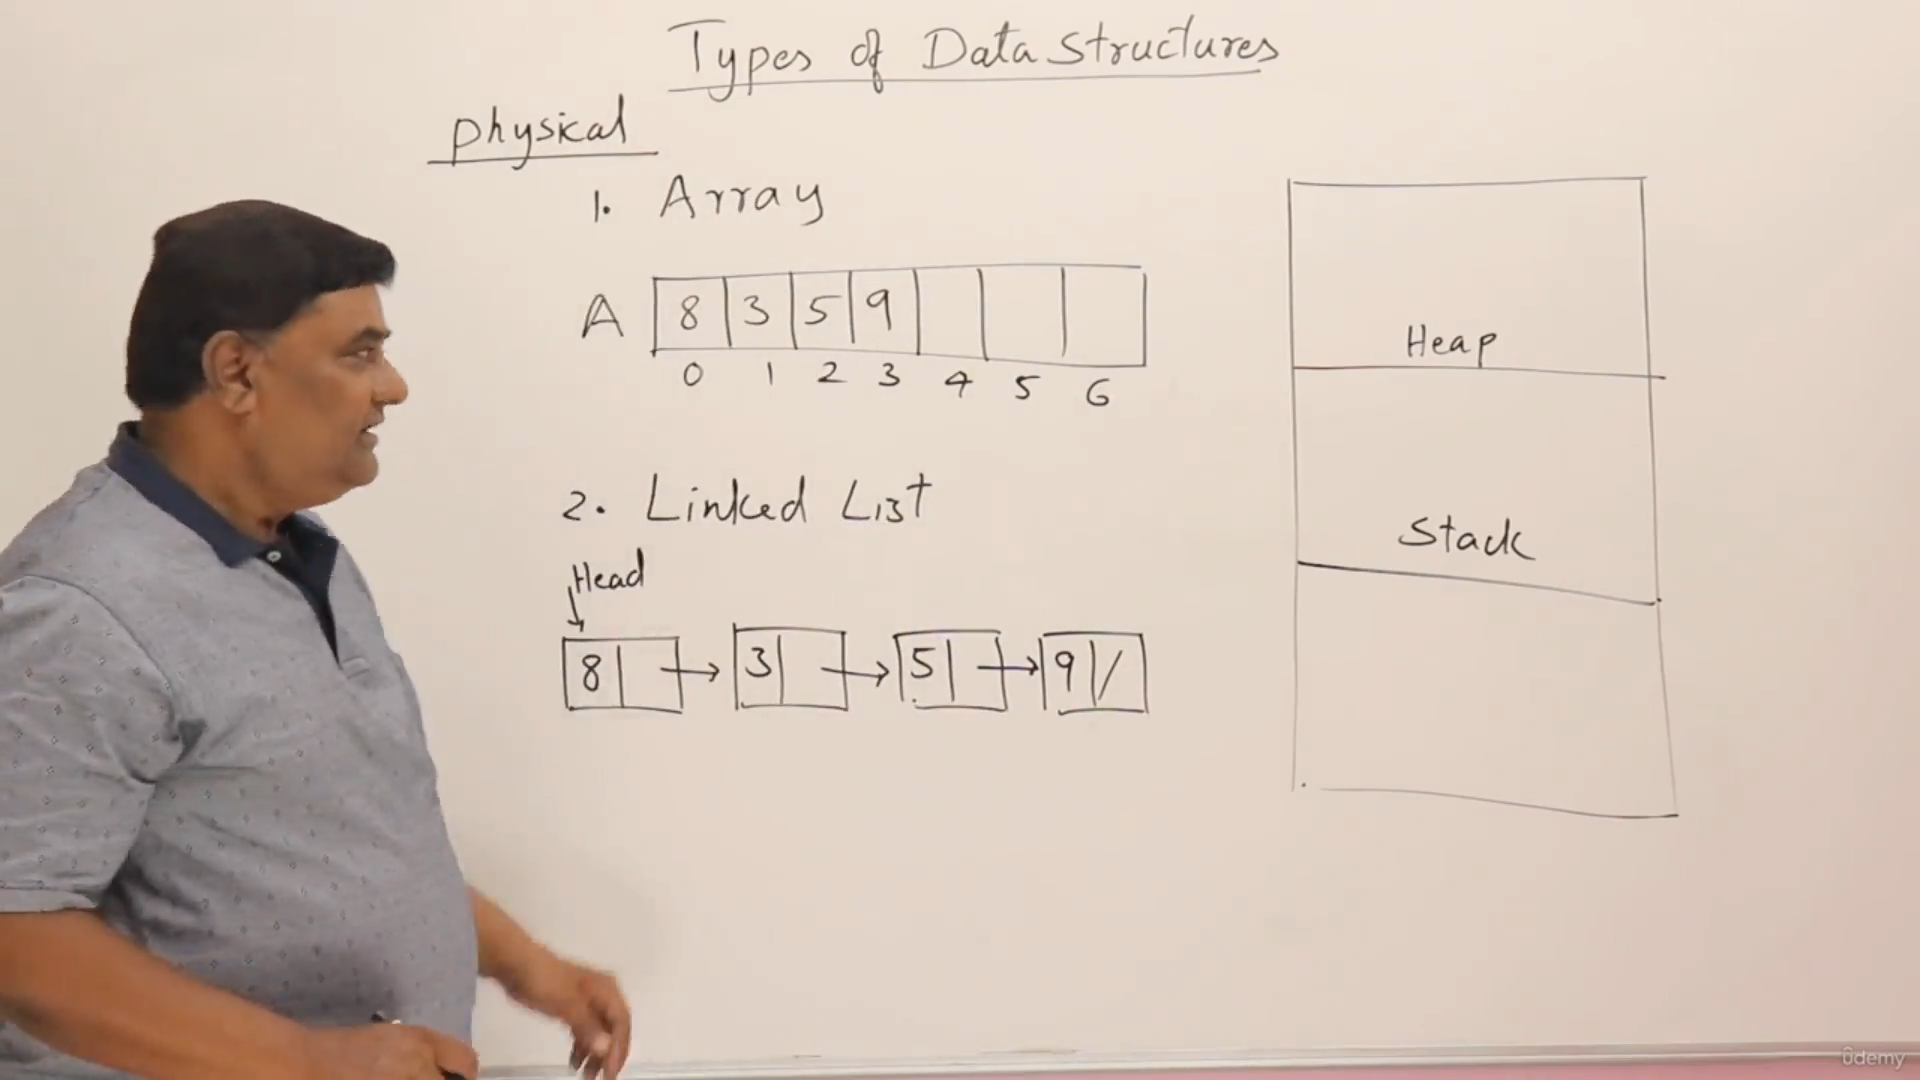 Types of Data Structures
Physical
1. Array
A 8 3 5 9
0 1 2 3 4 5 6
2. Linked List
Head
8 3 5 9 /
Heap
Stack
ûdemy